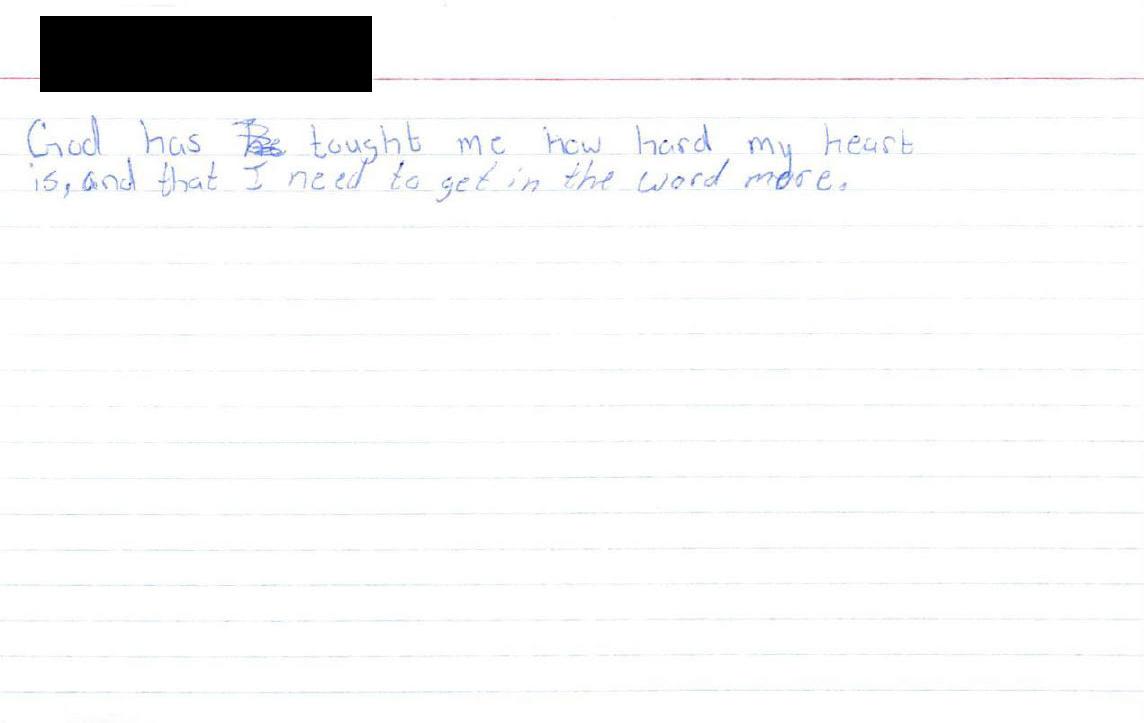 God has tought me how hard my heart
is, and that I need to get in the word more.